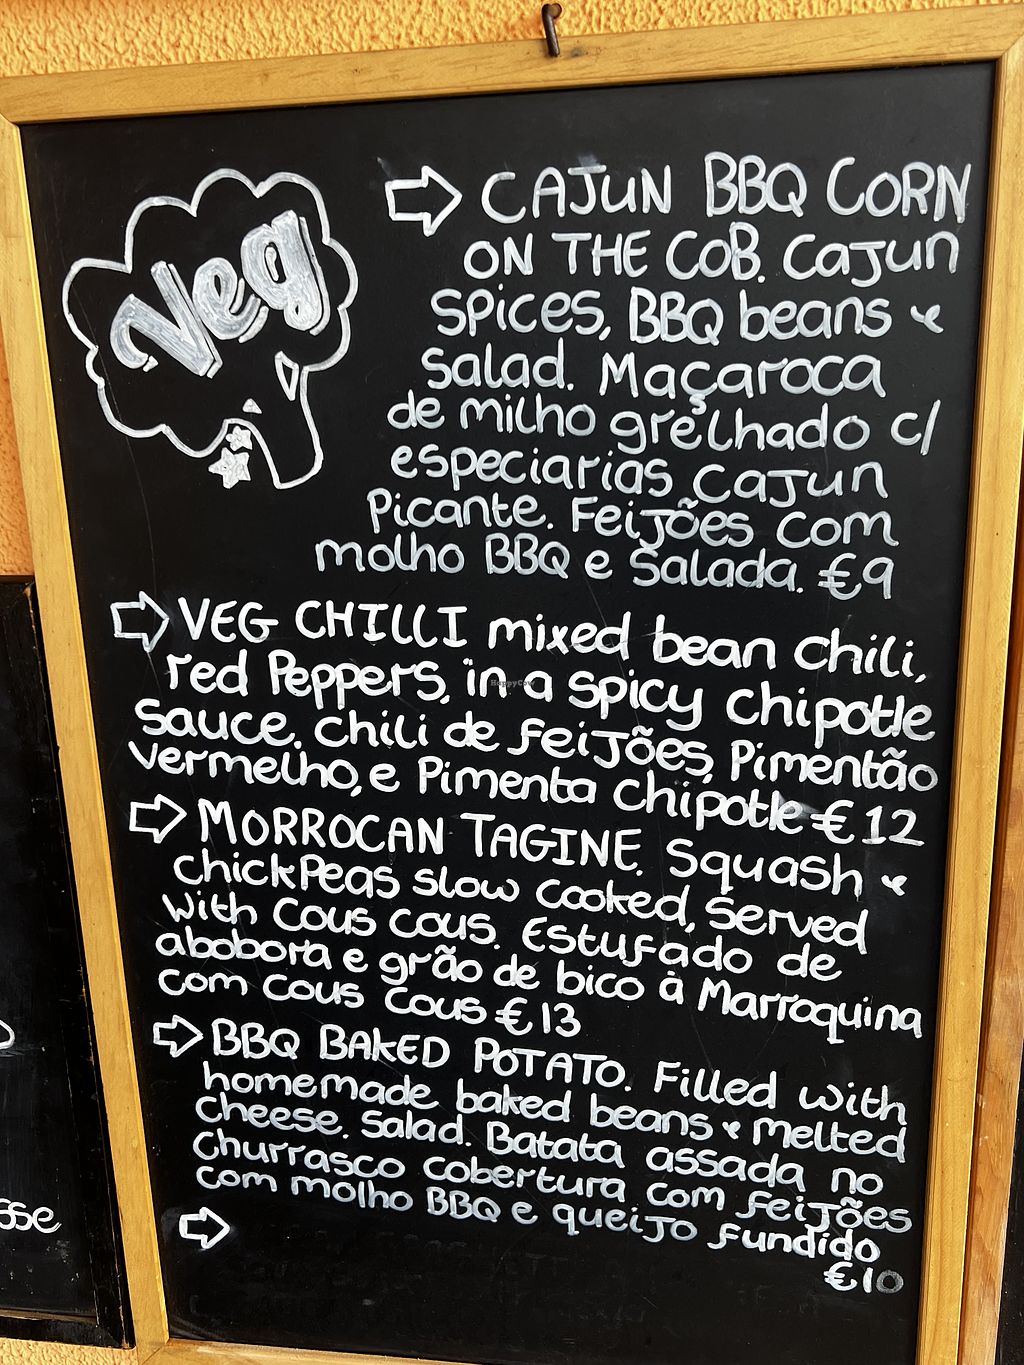 Veg
CAJUN BBQ CORN
ON THE COB. Cajun
Spices, BBQ beans &
Salad. Maçaroca
de milho grelhado c/
especiarias Cajun
Picante. Feijões com
molho BBQ e Salada. €9
VEG CHILLI mixed bean Chili,
red Peppers, in a spicy Chipotle
Sauce. Chili de feijões, Pimentão
vermelho, e Pimenta Chipotle €12
MORROCAN TAGINE. Squash &
Chickpeas slow cooked, Served
with Cous Cous. Estufado de
abobora e grão de bico à Marroquina
com Cous Cous €13
BBQ BAKED POTATO. Filled with
homemade baked beans & melted
Cheese. Salad. Batata assada no
Churrasco cobertura com feijões
com molho BBQ e queijo fundido
€10
sse
HappyCow